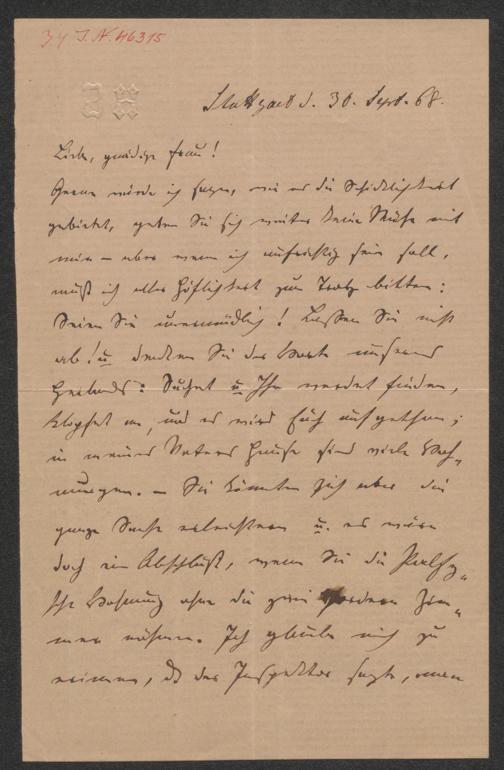 34 J. N. 46315
Stuttgart d. 30. Sept. 68.
Liebe, gnädige Frau!
Gerne würde ich sagen, wie es die Schicklichkeit
gebietet, geben Sie sich weiter keine Mühe mit
mir – aber wenn ich aufrichtig sein soll,
muß ich aller Höflichkeit zum Trotz bitten:
Seien Sie unermüdlich! Lassen Sie nicht
ab! u denken Sie der Worte unseres
Heilands: Suchet u Ihr werdet finden,
klopfet an, und es wird Euch aufgethan;
in meines Vaters Hause sind viele Woh„
nungen. – Sie könnten sich aber die
ganze Sache erleichtern u. es wäre
doch ein Abschluß, wenn Sie die
Wohnung ohne die zwei vorderen Zim„
mer nähmen. Ich glaube mich zu
erinnern, daß der Inspektor sagte, man